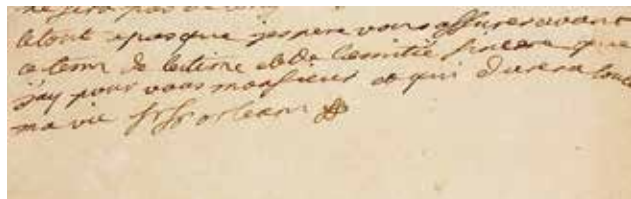 ne sera pas de
et tout que jespere vous assurer avant
ce tems de lestime et de lamitié sincere que
jay pour vous monsieur et qui durera toute
ma vie orleans